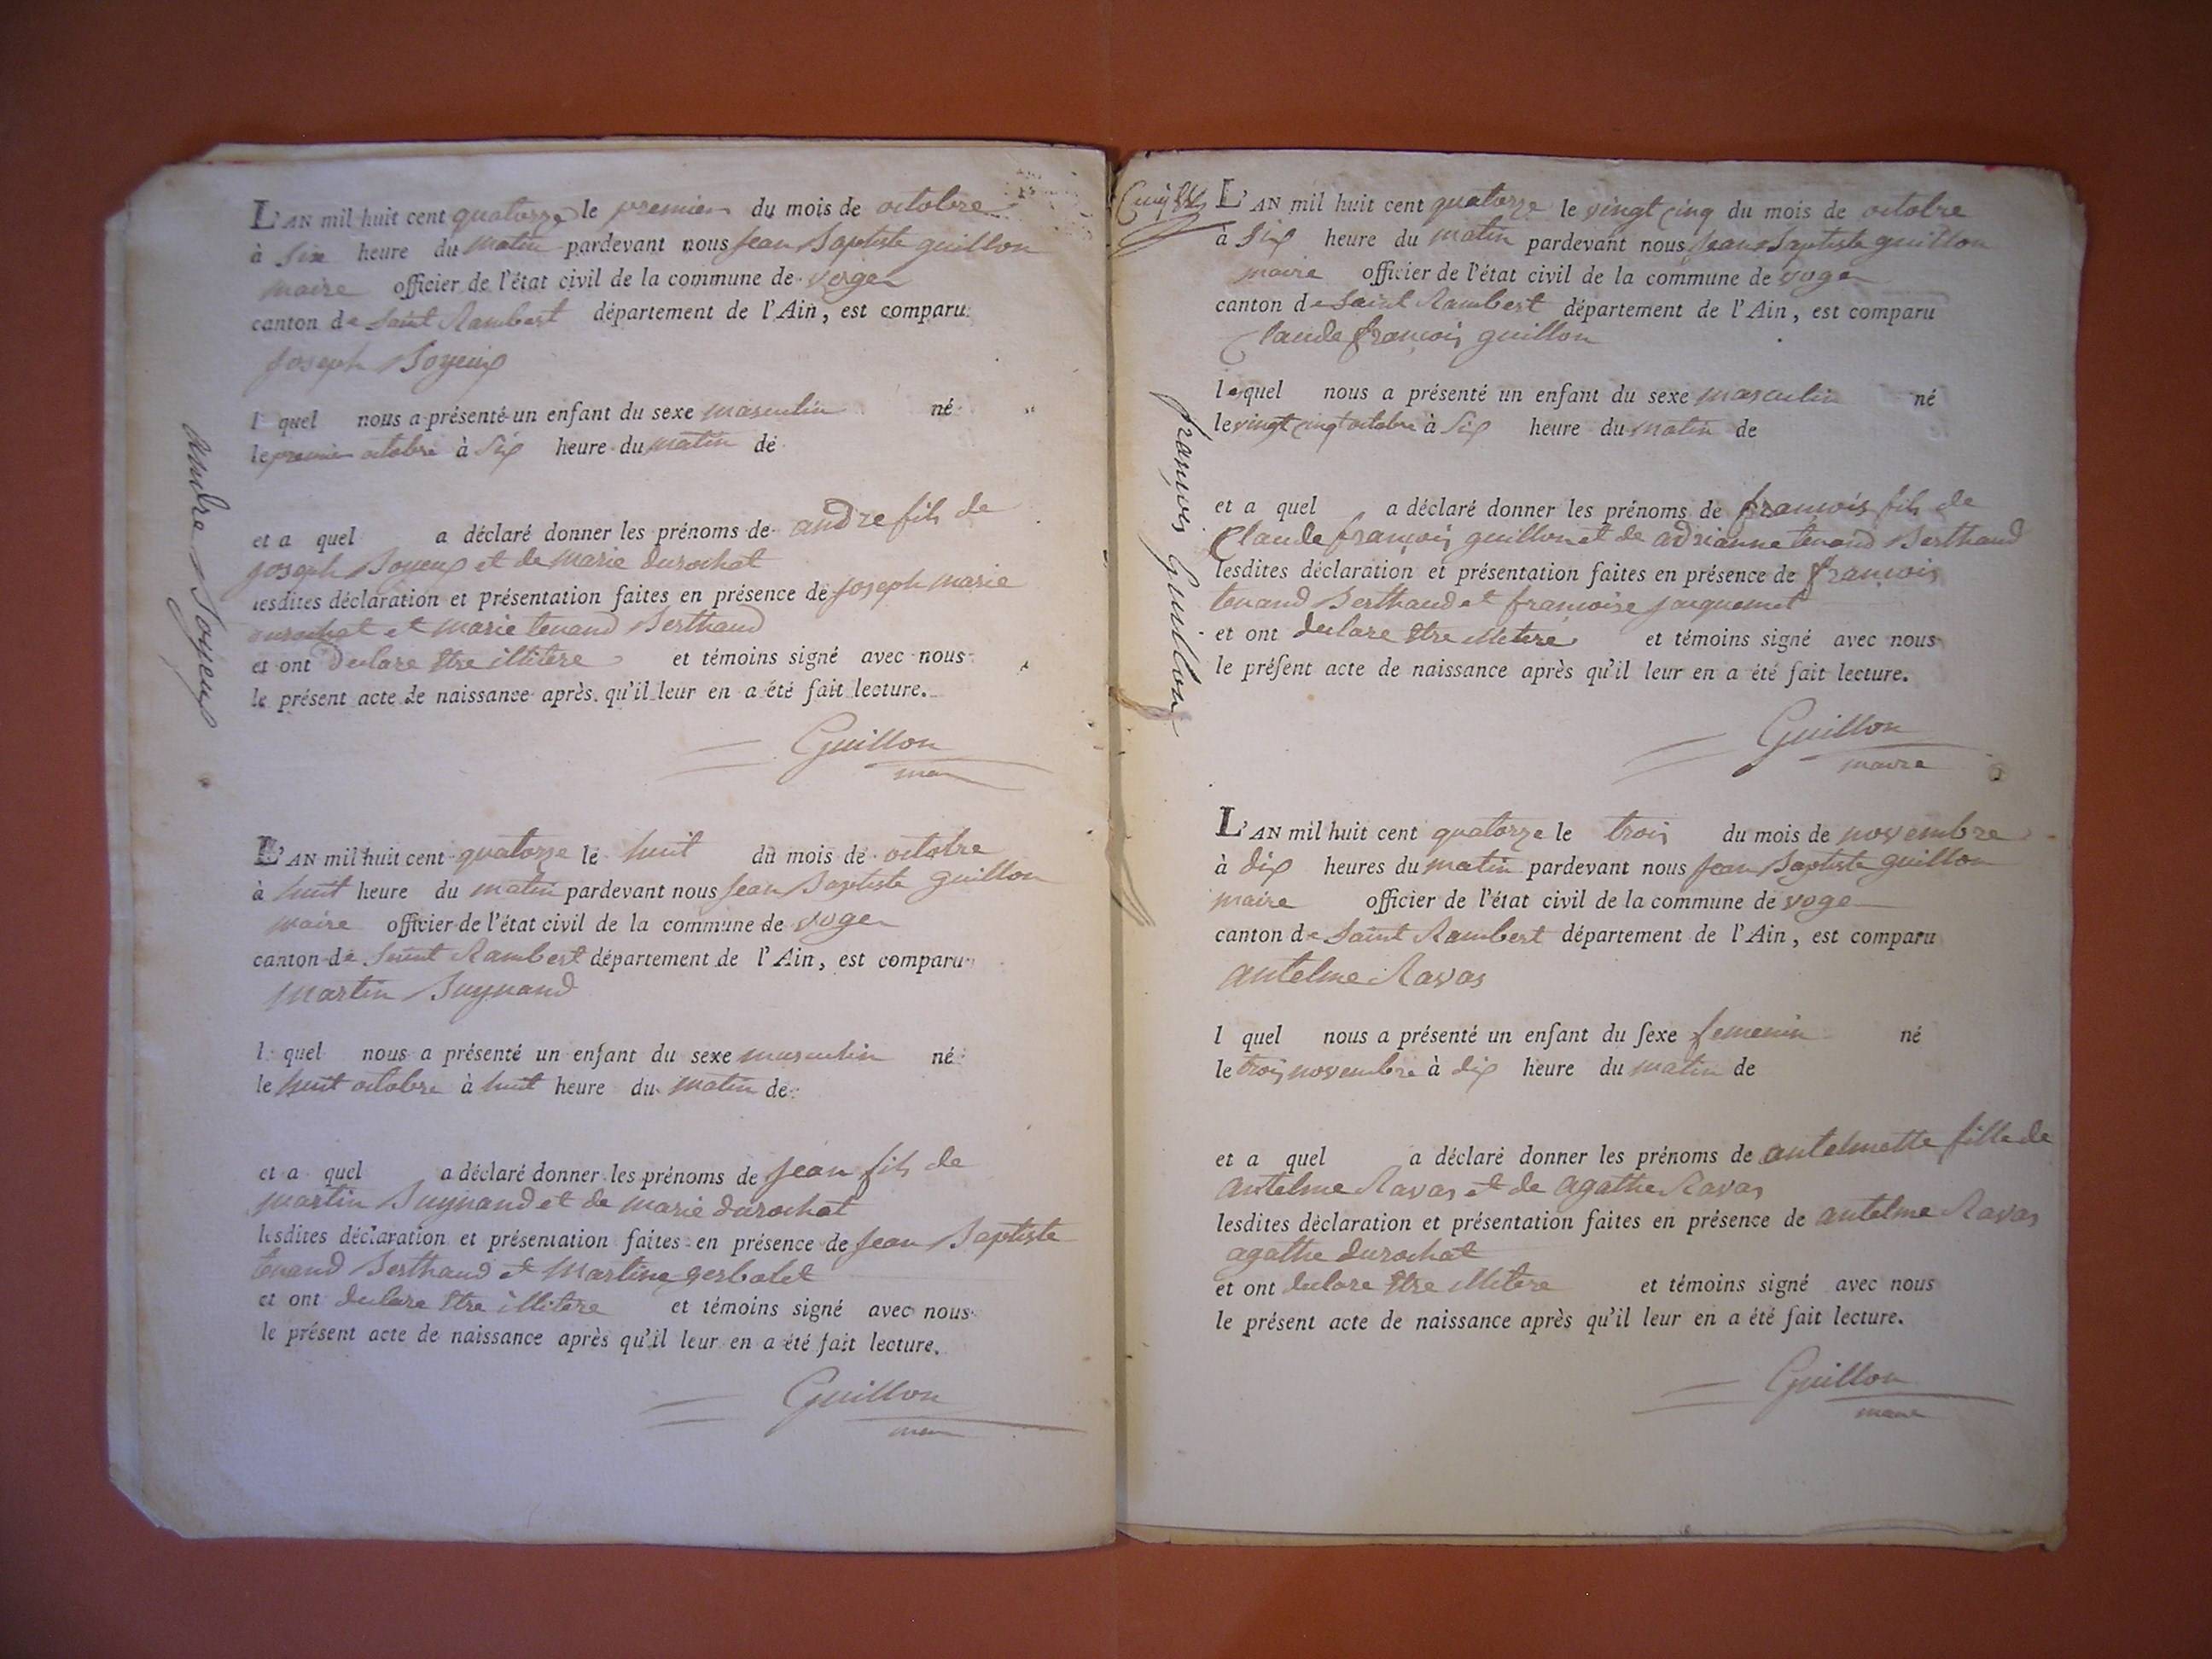 L'AN mil huit cent quatorze le premier du mois de octobre
à six heure du matin pardevant nous jean Baptiste guillon
maire officier de l'état civil de la commune de
canton de saint Rambert département de l'Ain, est comparu
joseph Boyeux
l quel nous a présenté un enfant du sexe masculin né
le premier octobre à six heure du matin de
et a quel a déclaré donner les prénoms de andre fils de
joseph Boyeux et de marie durochat
lesdites déclaration et présentation faites en présence de joseph marie
durochat et marie tenand Berthaud
et ont declare être illitere et témoins signé avec nous
le présent acte de naissance après qu'il leur en a été fait lecture.
Guillon
andre Boyeux
L'AN mil huit cent quatorze le huit du mois de octobre
à huit heure du matin pardevant nous jean Baptiste guillon
maire officier de l'état civil de la commune de
canton de saint Rambert département de l'Ain, est comparu
martin Buynand
l quel nous a présenté un enfant du sexe masculin né
le huit octobre à huit heure du matin de
et a quel a déclaré donner les prénoms de jean fils de
martin Buynand et de marie durochat
lesdites déclaration et présentation faites en présence de jean Baptiste
tenand Berthaud et martine gerbolet
et ont declare être illitere et témoins signé avec nous
le présent acte de naissance après qu'il leur en a été fait lecture.
Guillon
L'AN mil huit cent quatorze le vingt cinq du mois de octobre
à six heure du matin pardevant nous jean Baptiste guillon
maire officier de l'état civil de la commune de
canton de saint Rambert département de l'Ain, est comparu
Claude françois guillon
lequel nous a présenté un enfant du sexe masculin né
le vingt cinq octobre à six heure du matin de
et a quel a déclaré donner les prénoms de francois fils de
Claude françois guillon et de adrianne tenand Berthaud
lesdites déclaration et présentation faites en présence de françois
tenand Berthaud et francoise jacquemet
et ont declare être illitere et témoins signé avec nous
le présent acte de naissance après qu'il leur en a été fait lecture.
Guillon
maire
francois Guillon
L'AN mil huit cent quatorze le trois du mois de novembre
à dix heures du matin pardevant nous jean Baptiste guillon
maire officier de l'état civil de la commune de
canton de saint Rambert département de l'Ain, est comparu
antelme Ravas
l quel nous a présenté un enfant du sexe femenin né
le trois novembre à dix heure du matin de
et a quel a déclaré donner les prénoms de antelmette fille de
antelme Ravas et de agathe Ravas
lesdites déclaration et présentation faites en présence de antelme Ravas
agathe durochat
et ont declare être illitere et témoins signé avec nous
le présent acte de naissance après qu'il leur en a été fait lecture.
Guillon
maire